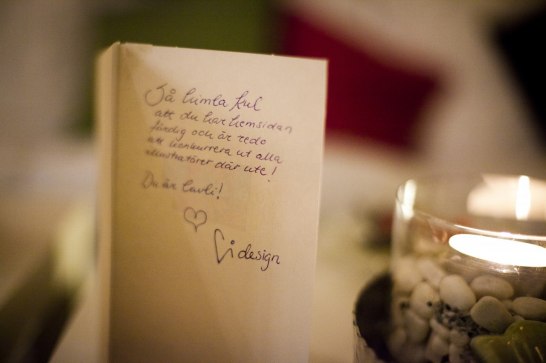 Så himla kul
att du har hemsidan
färdig och är redo
att konkurrera ut alla
illustratörer där ute!
Du är lavli!
design